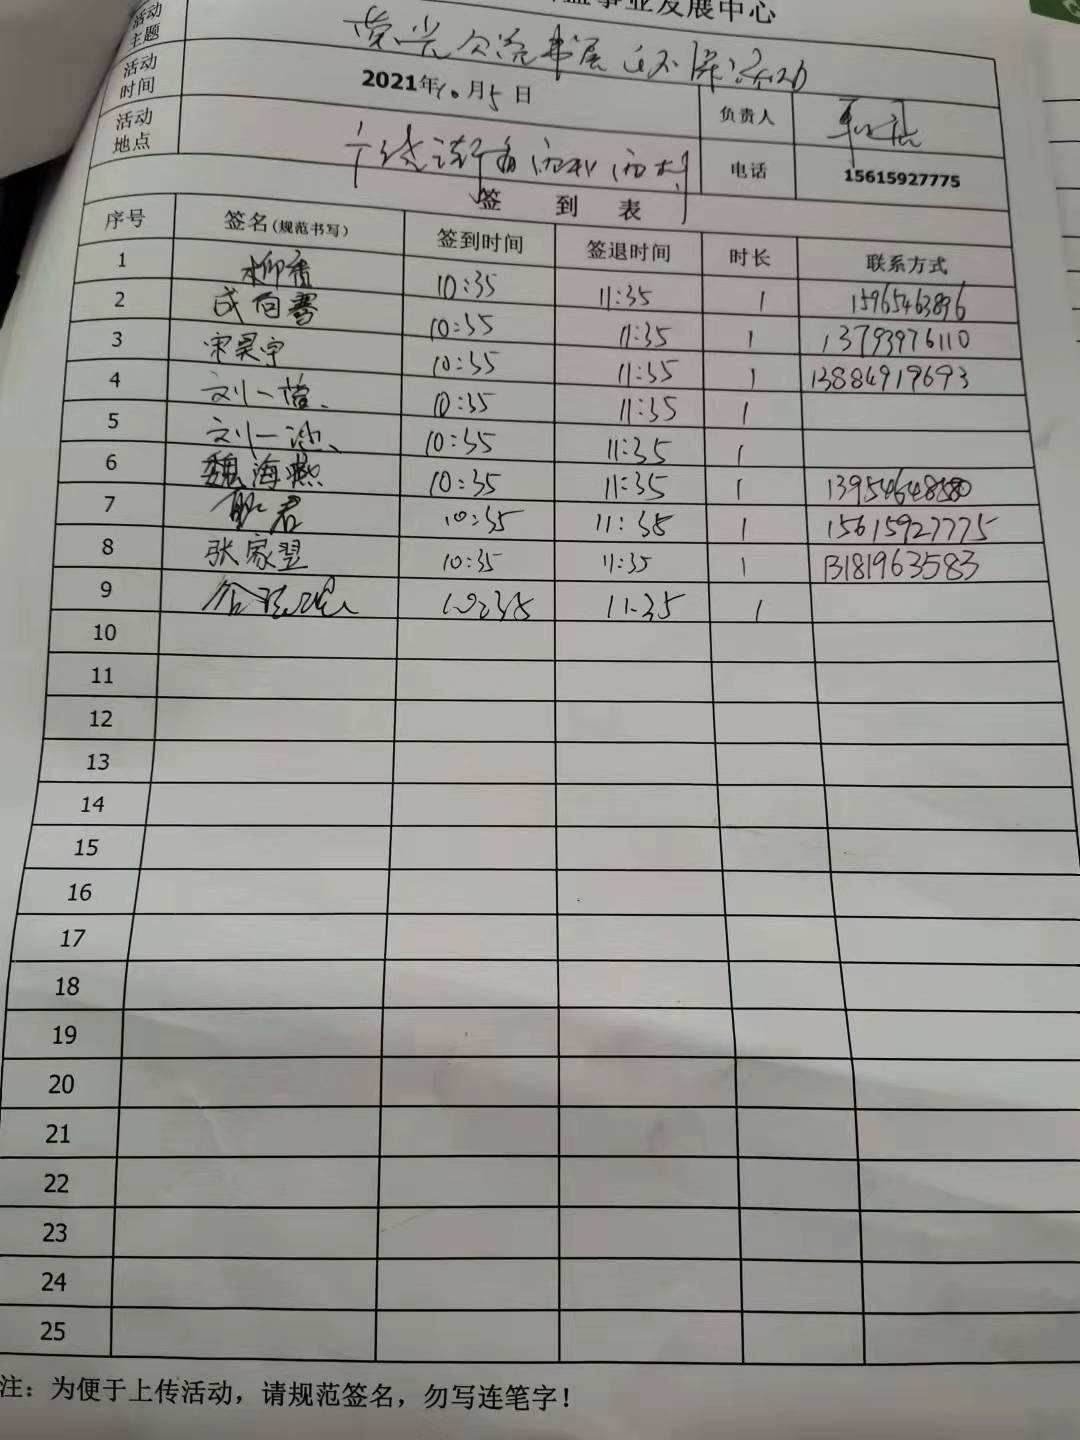 事业发展中心
活动
主题
活动
时间
2021年10月5日
负责人
活动
地点
电话
15615927775
签 到 表
序号 签名(规范书写) 签到时间 签退时间 时长 联系方式
1 柳青 10:35 11:35 1 15965463896
2 成向雪 10:35 11:35 1 13793976110
3 宋昊宇 10:35 11:35 1 13884919693
4 刘一 10:35 11:35 1
5 刘一 10:35 11:35 1
6 魏海燕 10:35 11:35 1
7 耿君 10:35 11:35 1 15615927775
8 张家翌 10:35 11:35 1 13181963583
9 10:35 11:35 1
10
11
12
13
14
15
16
17
18
19
20
21
22
23
24
25
注：为便于上传活动，请规范签名，勿写连笔字！